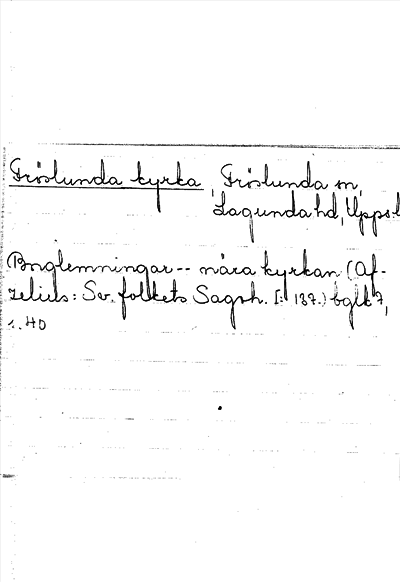 Fröslunda kyrka, Fröslunda sn,
Lagunda hd, Uppsl
Borglemningar -- nära kyrkan (Af-
zelius: Sv. folkets Sagoh. I: 137.) bglk 7,
s. 40